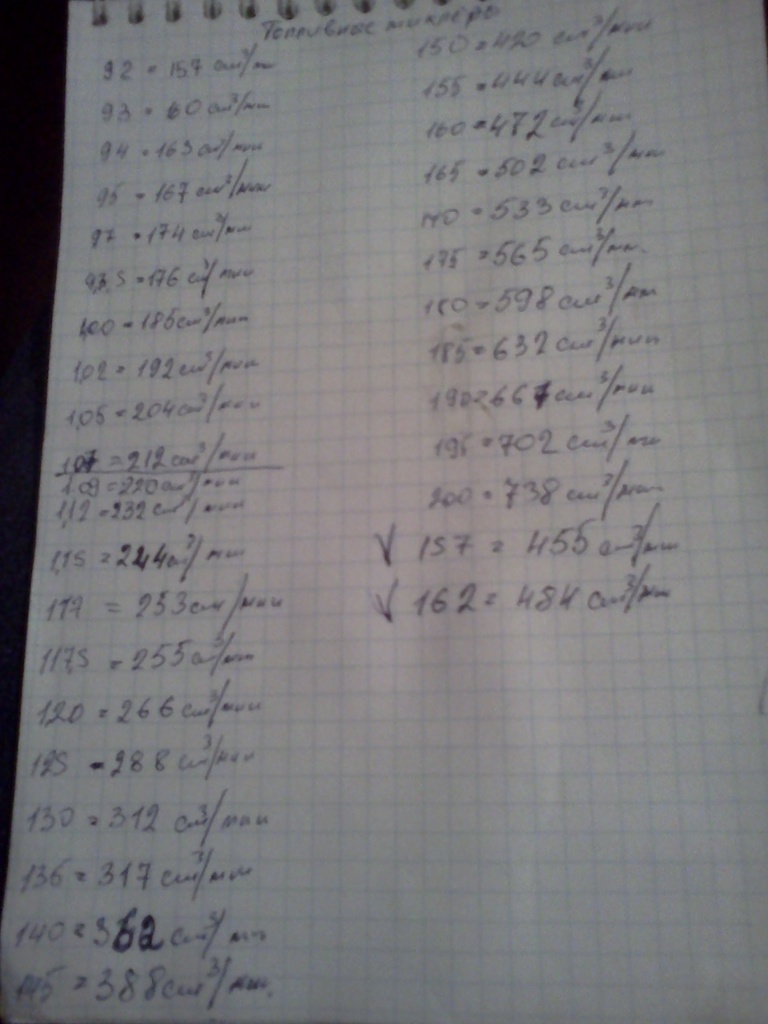 Топливные жиклёры
92 = 157 см³/мин
93 = 60 см³/мин
94 = 163 см³/мин
95 = 167 см³/мин
97 = 174 см³/мин
97,5 = 176 см³/мин
1,00 = 185 см³/мин
1,02 = 192 см³/мин
1,05 = 204 см³/мин
107 = 212 см³/мин
1.09 = 220 см³/мин
1,12 = 232 см³/мин
1,15 = 244 см³/мин
117 = 253 см/мин
117,5 = 255 см³/мин
120 = 266 см³/мин
125 = 288 см³/мин
130 = 312 см³/мин
136 = 317 см³/мин
140 = 362 см³/мин
145 = 388 см³/мин.
150 = 420 см³/мин
155 = 444 см³/мин
160 = 472 см³/мин
165 = 502 см³/мин
170 = 533 см³/мин
175 = 565 см³/мин.
180 = 598 см³/мин
185 = 632 см³/мин
190 = 667 см³/мин
195 = 702 см³/мин
200 = 738 см³/мин
V 157 = 455 см³/мин
V 162 = 484 см³/мин